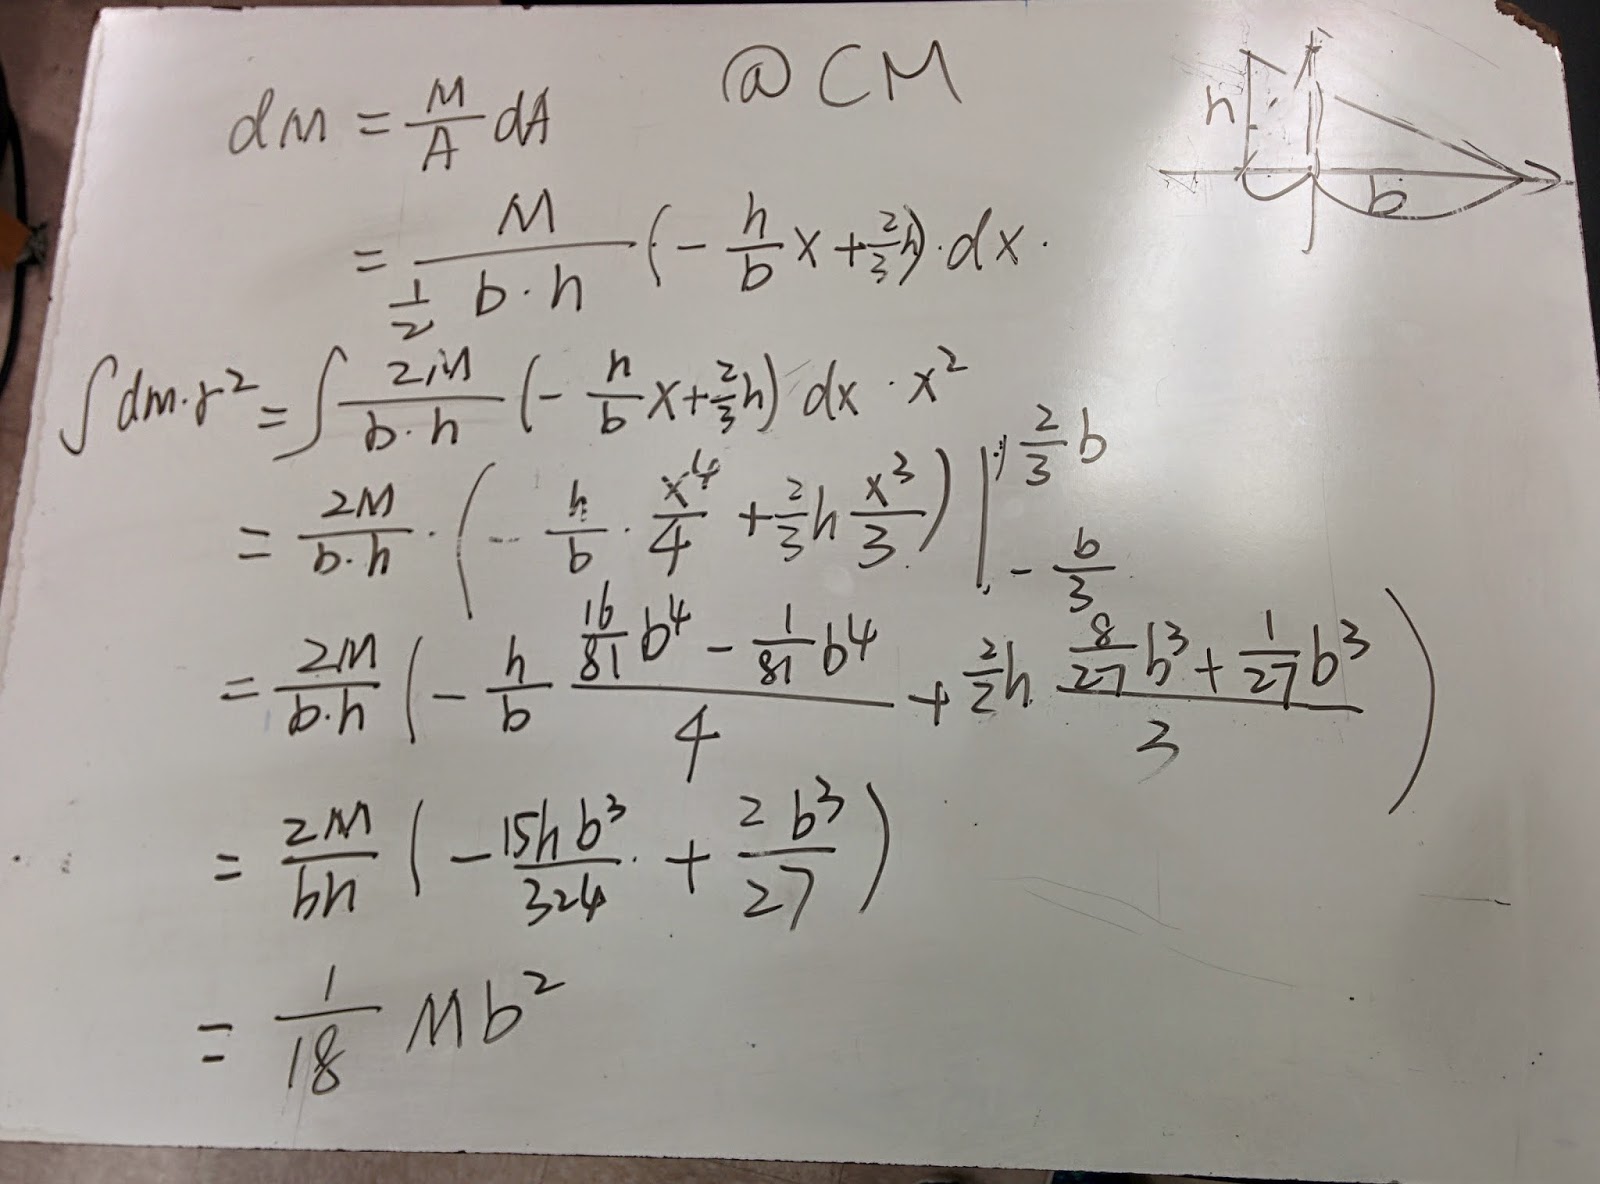 @ CM
dm = M/A dA
= M/(1/2 b·h) (- h/b x + 2/3 h)·dx.
∫dm·r² = ∫ 2M/(b·h) (- h/b x + 2/3 h) dx · x²
= 2M/(b·h) · (- h/b · x⁴/4 + 2/3 h x³/3) |_{- b/3}^{2/3 b}
= 2M/(b·h) (- h/b (16/81 b⁴ - 1/81 b⁴)/4 + 2/2 h (8/27 b³ + 1/27 b³)/3)
= 2M/(bh) (- 15hb³/324 · + 2 b³/27)
= 1/18 Mb²
h
b